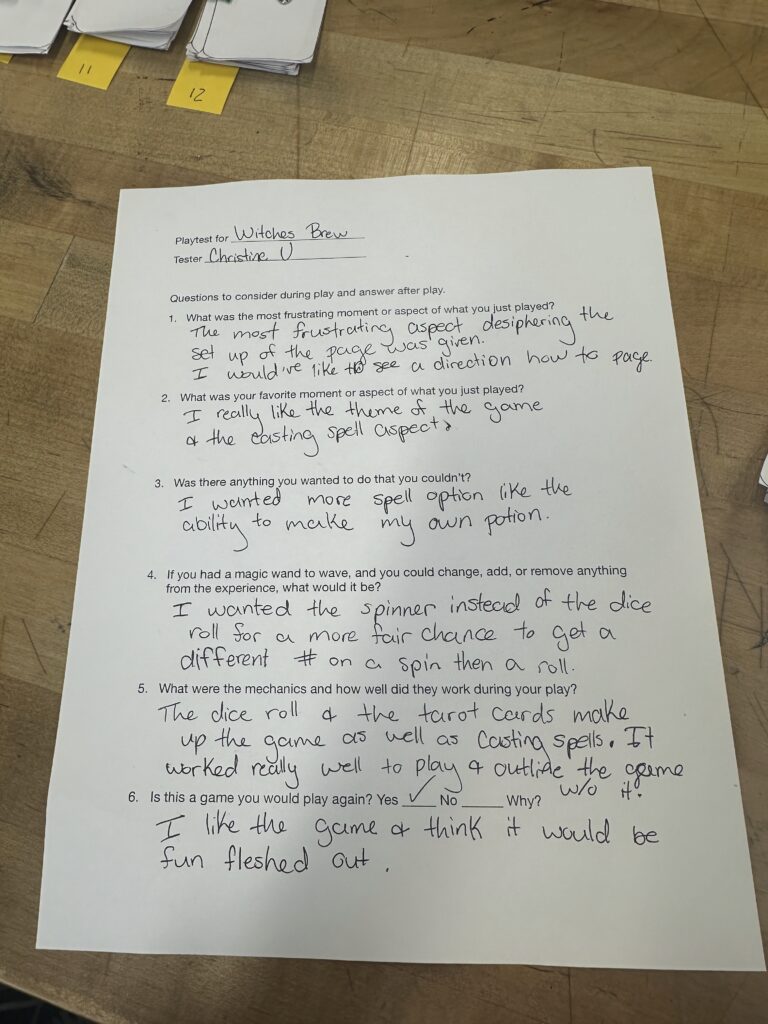 11
12
Playtest for Witches Brew
Tester Christine U
Questions to consider during play and answer after play.
1. What was the most frustrating moment or aspect of what you just played?
The most frustrating aspect desiphering the
set up of the page was given.
I would've like to see a direction how to page.
2. What was your favorite moment or aspect of what you just played?
I really like the theme of the game
& the casting spell aspect.
3. Was there anything you wanted to do that you couldn't?
I wanted more spell option like the
ability to make my own potion.
4. If you had a magic wand to wave, and you could change, add, or remove anything
from the experience, what would it be?
I wanted the spinner instead of the dice
roll for a more fair chance to get a
different # on a spin then a roll.
5. What were the mechanics and how well did they work during your play?
The dice roll & the tarot cards make
up the game as well as casting spells. It
worked really well to play & outline the game
w/o it.
6. Is this a game you would play again? Yes ✓ No Why?
I like the game & think it would be
fun fleshed out.